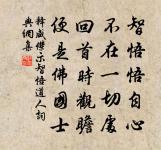 智悟悟自心
不在一切處
回首時觀瞻
便是佛國土
釋咸傑示智悟道人詞
典網集